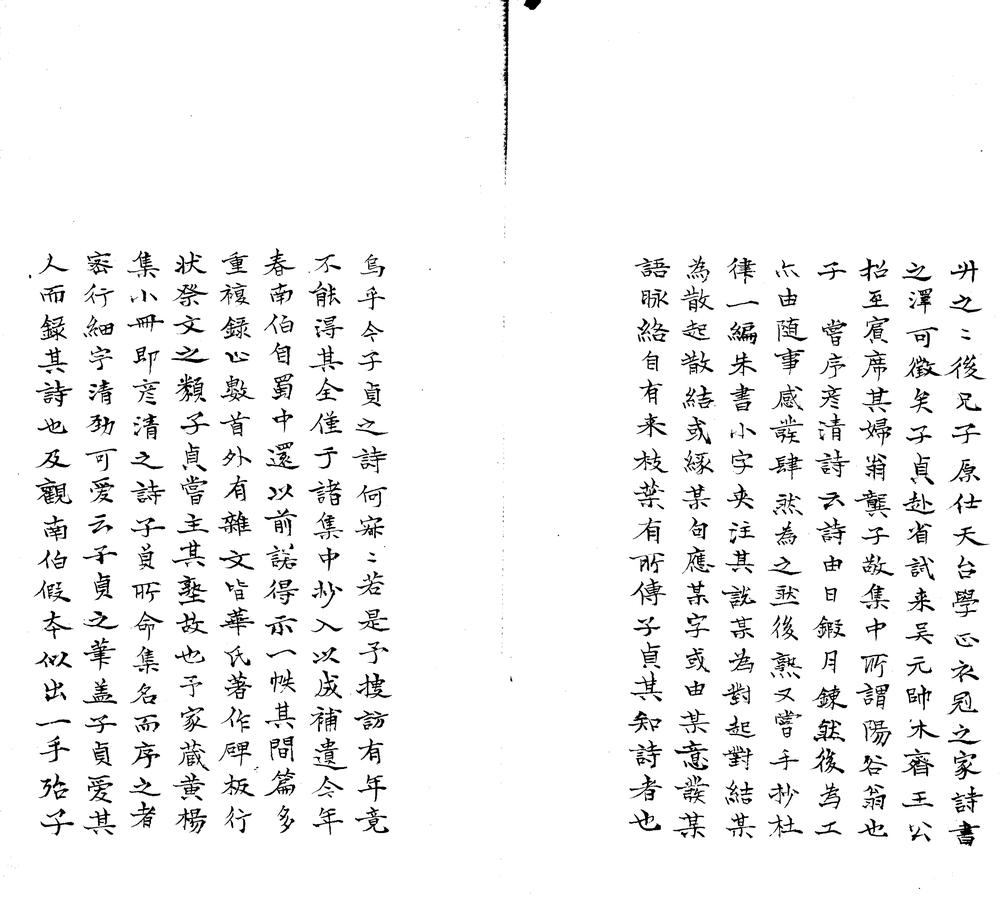 升之之後兄子原仕天台學正衣冠之家詩書
之澤可徵矣子貞赴省試来吴元帥木齊王公
招至賔席其婦翁龔子敬集中所謂陽谷翁也
子　嘗序彦清詩云詩由日鍜月鍊然後為工
亦由随事感發肆然為之然後熟又嘗手抄杜
律一編朱書小字夾注其說某為對起對結某
為散起散結或緣某句應某字或由某意發某
語脉絡自有来枝葉有所傳子貞其知詩者也
烏乎今子貞之詩何寂寂若是予搜訪有年竟
不能淂其全僅于諸集中抄入以成補遺今年
春南伯自蜀中還以前諾得示一帙其間篇多
重複録止數首外有雜文皆華氏著作碑板行
状祭文之類子貞嘗主其塾故也予家蔵黄楊
集小冊即彦清之詩子貟所命集名而序之者
宻行細字清勁可愛云子貞之筆盖子貞愛其
人而録其詩也及觀南伯假夲似出一手殆子